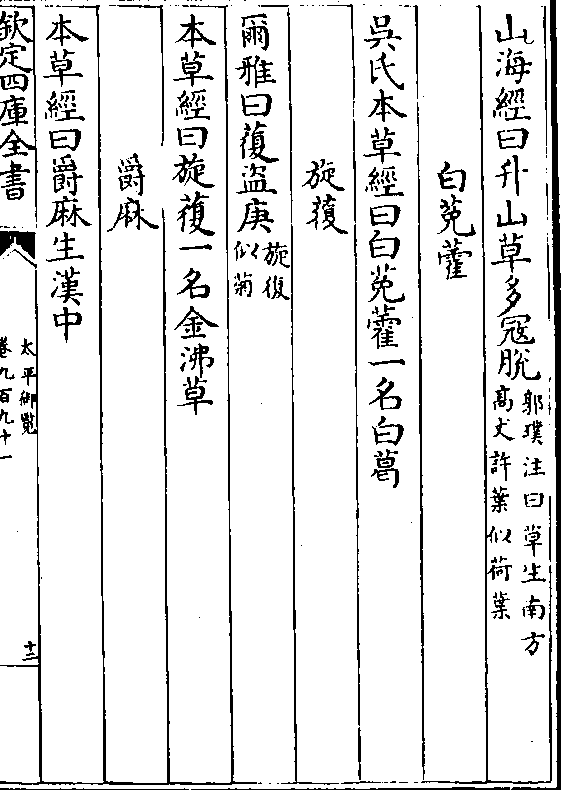 山海經曰升山草多冦脫郭璞注曰草生南方高丈許葉似荷葉
白莬藿
吳氏本草經曰白莬藿一名白葛
旋蕧
爾雅曰蕧盗庚旋復似菊
本草經曰旋蕧一名金沸草
爵麻
本草經曰爵麻生漢中
欽定四庫全書
太平御覧
卷九百九十一
十二